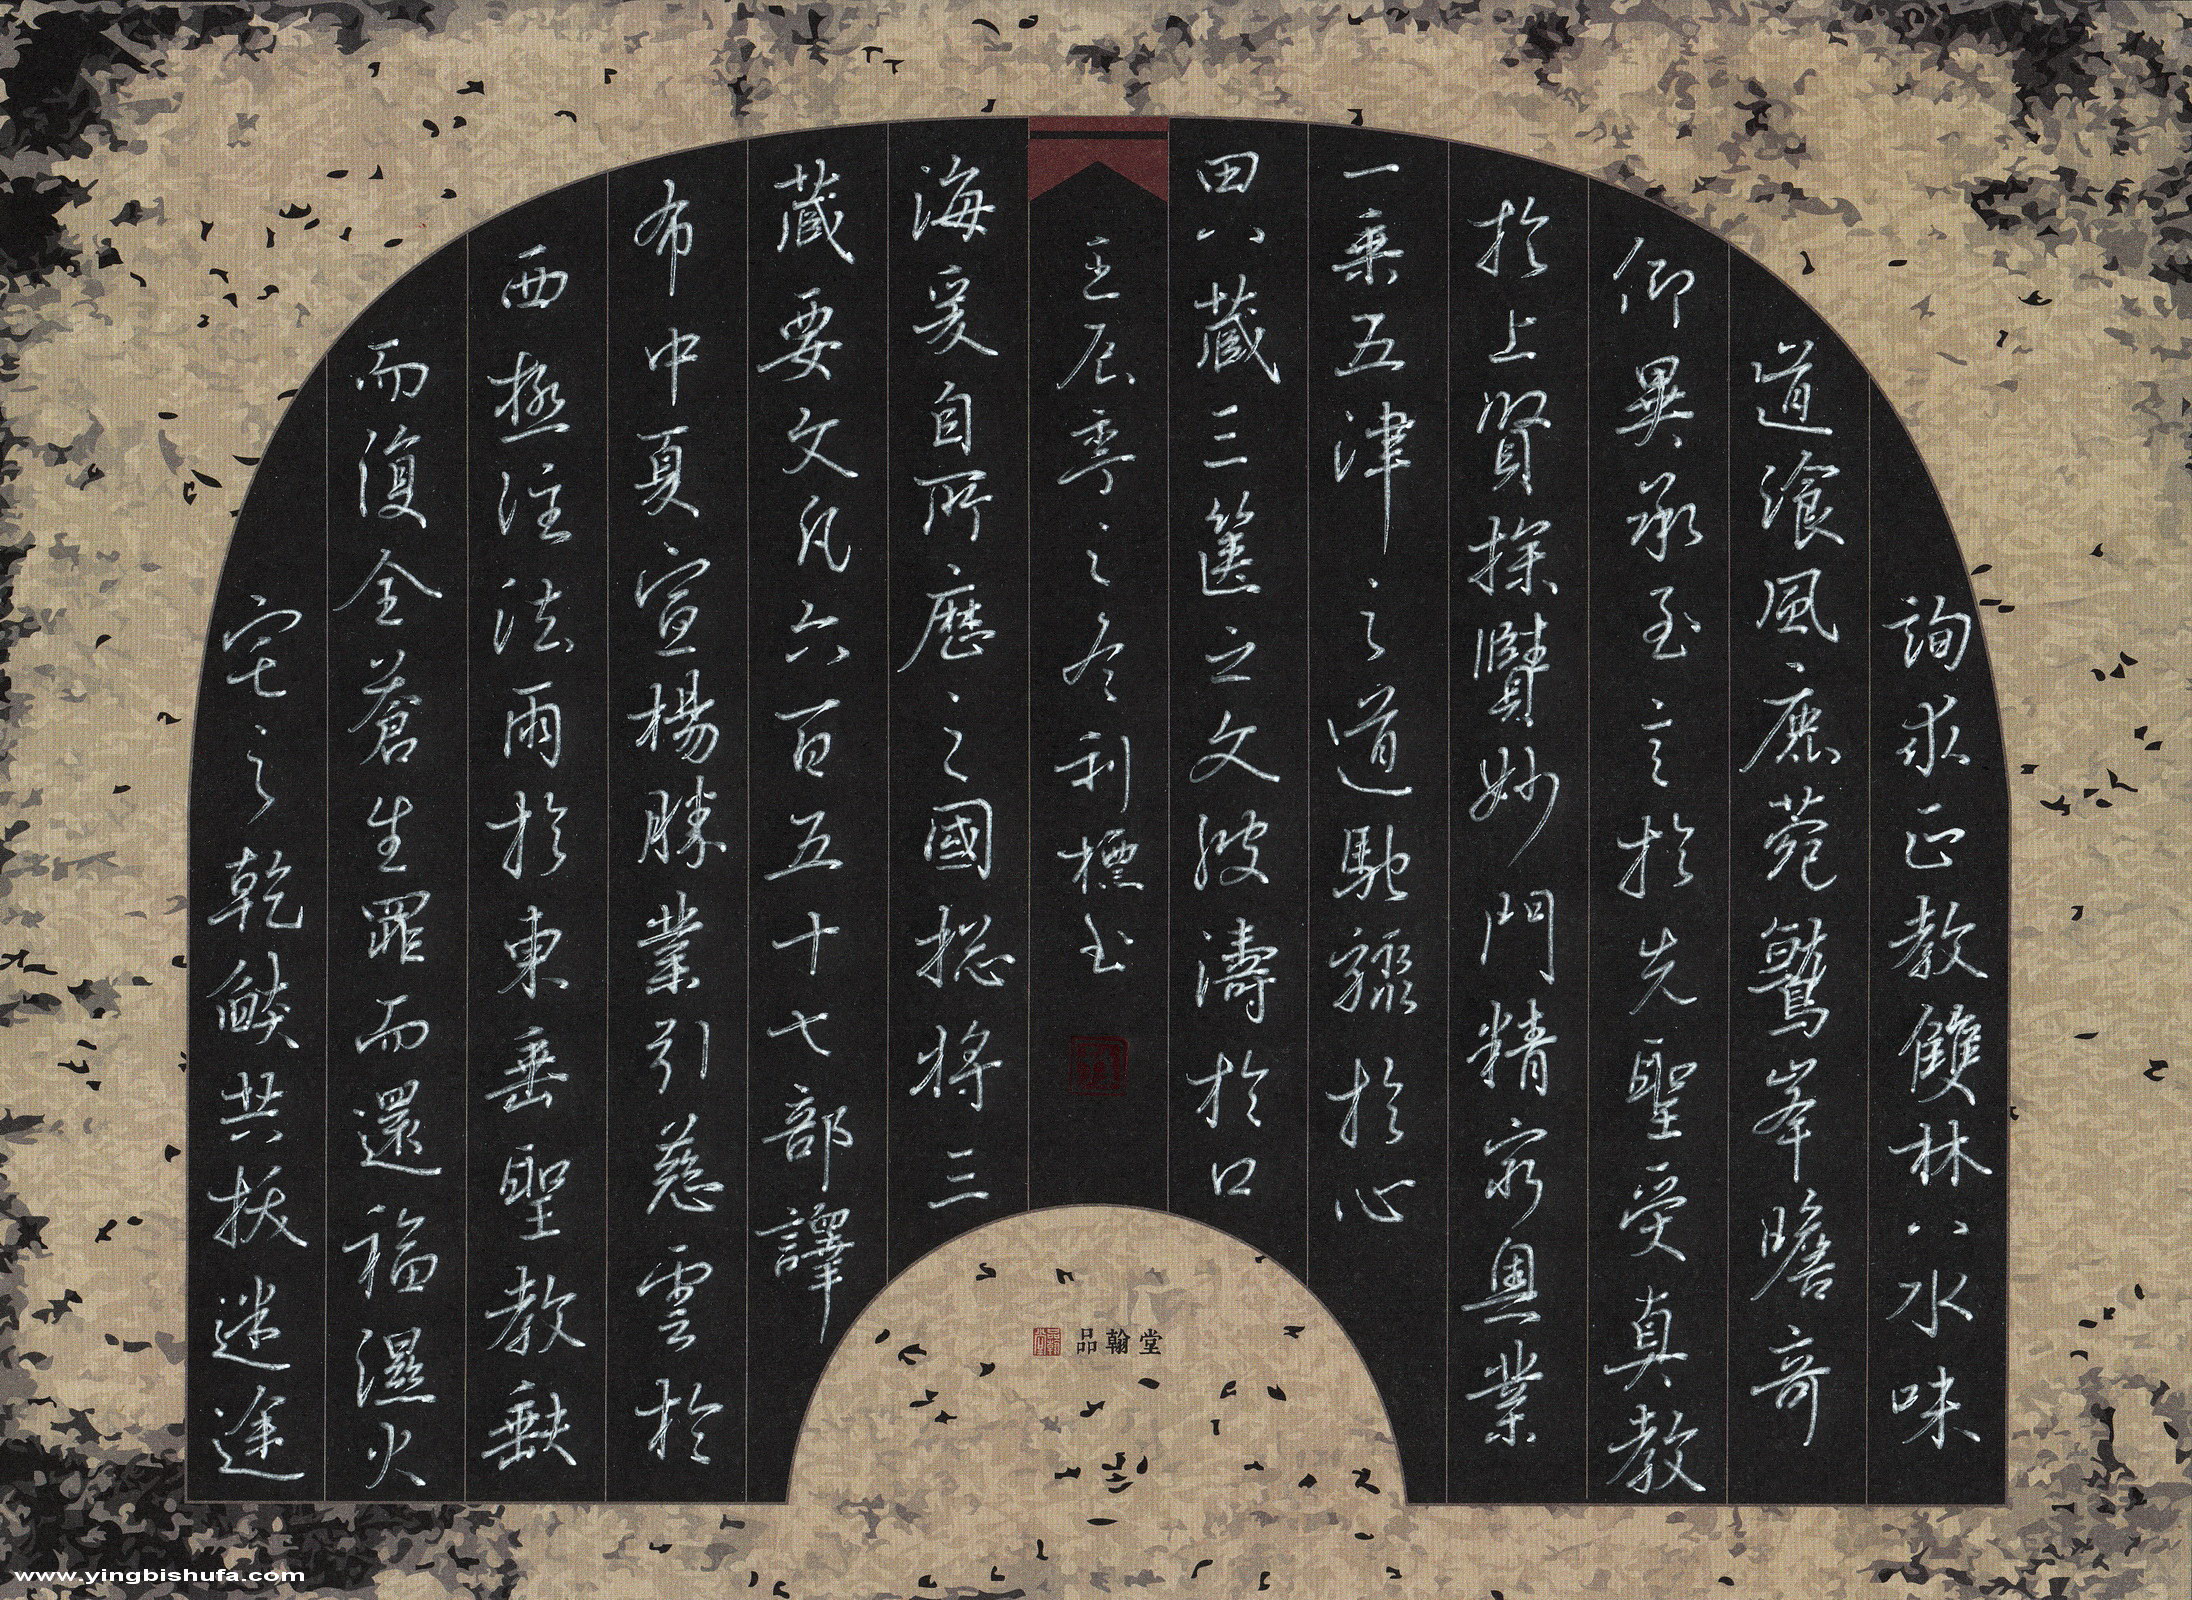 詢求正教雙林八水味
道飡風鹿菀鷲峯瞻奇
仰異承至言於先聖受真教
於上賢探賾妙門精窮奧業
一乘五津之道馳驟於心
田八藏三篋之文波濤於口
壬辰季之冬利標書
海爰自所歷之國總將三
藏要文凡六百五十七部譯
布中夏宣揚勝業引慈雲於
西極注法雨於東垂聖教缺
而復全蒼生罪而還福濕火
宅之乾燄共拔迷途
品翰堂
www.yingbishufa.com